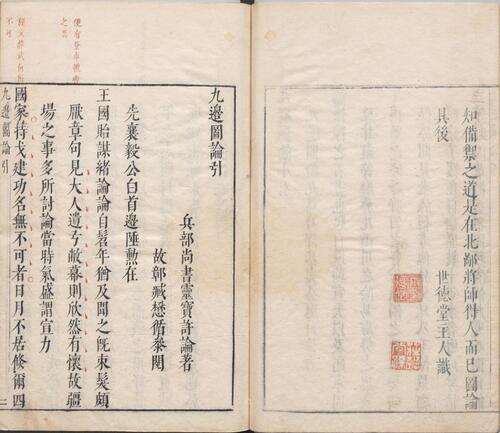 知備禦之道是在北鄙將帥得人而已圖論
具後
世德堂主人識
九邊圖論引
兵部尚書靈寶許論著
故鄣臧懋循叅閱
先襄毅公白首邊陲勲在
王國貽謀緒論論自髫年猶及聞之旣束髮頗
厭章句見大人遺弓敝幕則欣然有懷故疆
場之事多所討論當時氣盛謂宣力
國家持戈建功名無不可者日月不居倏爾四
九邊圖論引
二
便有登車攬轡
之思
不可